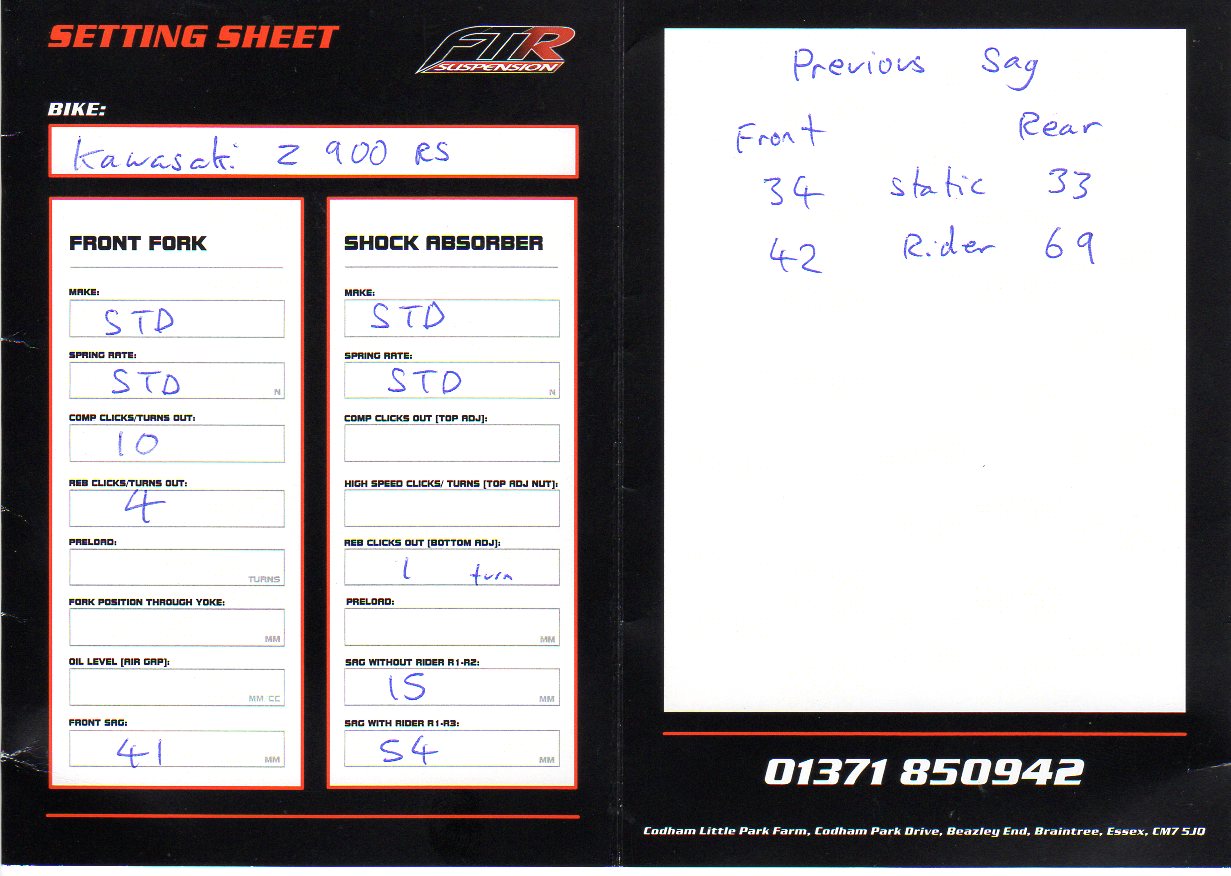 SETTING SHEET
FTR
SUSPENSION
BIKE:
Kawasaki Z 900 RS
FRONT FORK
MAKE:
STD
SPRING RATE:
STD N
COMP CLICKS/TURNS OUT:
10
REB CLICKS/TURNS OUT:
4
PRELOAD:
TURNS
FORK POSITION THROUGH YOKE:
MM
OIL LEVEL [AIR GAP]:
MM CC
FRONT SAG:
41 MM
SHOCK ABSORBER
MAKE:
STD
SPRING RATE:
STD N
COMP CLICKS OUT [TOP ADJ]:
HIGH SPEED CLICKS/ TURNS [TOP ADJ NUT]:
REB CLICKS OUT [BOTTOM ADJ]:
1 turn
PRELOAD:
MM
SAG WITHOUT RIDER R1-R2:
15 MM
SAG WITH RIDER R1-R3:
54 MM
Previous Sag
Front Rear
34 static 33
42 Rider 69
01371 850942
Codham Little Park Farm, Codham Park Drive, Beazley End, Braintree, Essex, CM7 5JQ